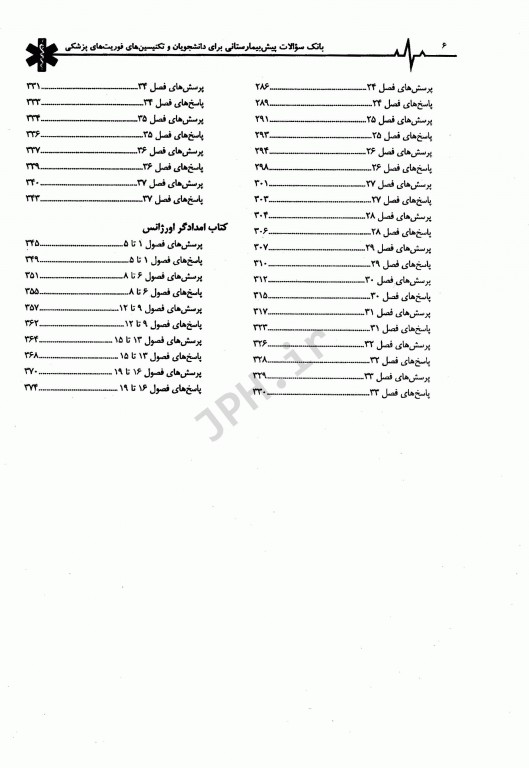 ۶ بانک سؤالات پیش‌بیمارستانی برای دانشجویان و تکنیسین‌های فوریت‌های پزشکی
پرسش‌های فصل ۲۴......۲۸۶
پاسخ‌های فصل ۲۴......۲۸۹
پرسش‌های فصل ۲۵......۲۹۱
پاسخ‌های فصل ۲۵......۲۹۳
پرسش‌های فصل ۲۶......۲۹۴
پاسخ‌های فصل ۲۶......۲۹۸
پرسش‌های فصل ۲۷......۳۰۱
پاسخ‌های فصل ۲۷......۳۰۳
پرسش‌های فصل ۲۸......۳۰۴
پاسخ‌های فصل ۲۸......۳۰۶
پرسش‌های فصل ۲۹......۳۰۷
پاسخ‌های فصل ۲۹......۳۱۰
پرسش‌های فصل ۳۰......۳۱۲
پاسخ‌های فصل ۳۰......۳۱۵
پرسش‌های فصل ۳۱......۳۱۷
پاسخ‌های فصل ۳۱......۳۲۳
پرسش‌های فصل ۳۲......۳۲۶
پاسخ‌های فصل ۳۲......۳۲۸
پرسش‌های فصل ۳۳......۳۲۹
پاسخ‌های فصل ۳۳......۳۳۰
پرسش‌های فصل ۳۴......۳۳۱
پاسخ‌های فصل ۳۴......۳۳۳
پرسش‌های فصل ۳۵......۳۳۴
پاسخ‌های فصل ۳۵......۳۳۶
پرسش‌های فصل ۳۶......۳۳۷
پاسخ‌های فصل ۳۶......۳۳۹
پرسش‌های فصل ۳۷......۳۴۰
پاسخ‌های فصل ۳۷......۳۴۳
کتاب امدادگر اورژانس
پرسش‌های فصول ۱ تا ۵......۳۴۵
پاسخ‌های فصول ۱ تا ۵......۳۴۹
پرسش‌های فصول ۶ تا ۸......۳۵۱
پاسخ‌های فصول ۶ تا ۸......۳۵۵
پرسش‌های فصول ۹ تا ۱۲......۳۵۷
پاسخ‌های فصول ۹ تا ۱۲......۳۶۲
پرسش‌های فصول ۱۳ تا ۱۵......۳۶۴
پاسخ‌های فصول ۱۳ تا ۱۵......۳۶۸
پرسش‌های فصول ۱۶ تا ۱۹......۳۷۰
پاسخ‌های فصول ۱۶ تا ۱۹......۳۷۴
JPH.ir